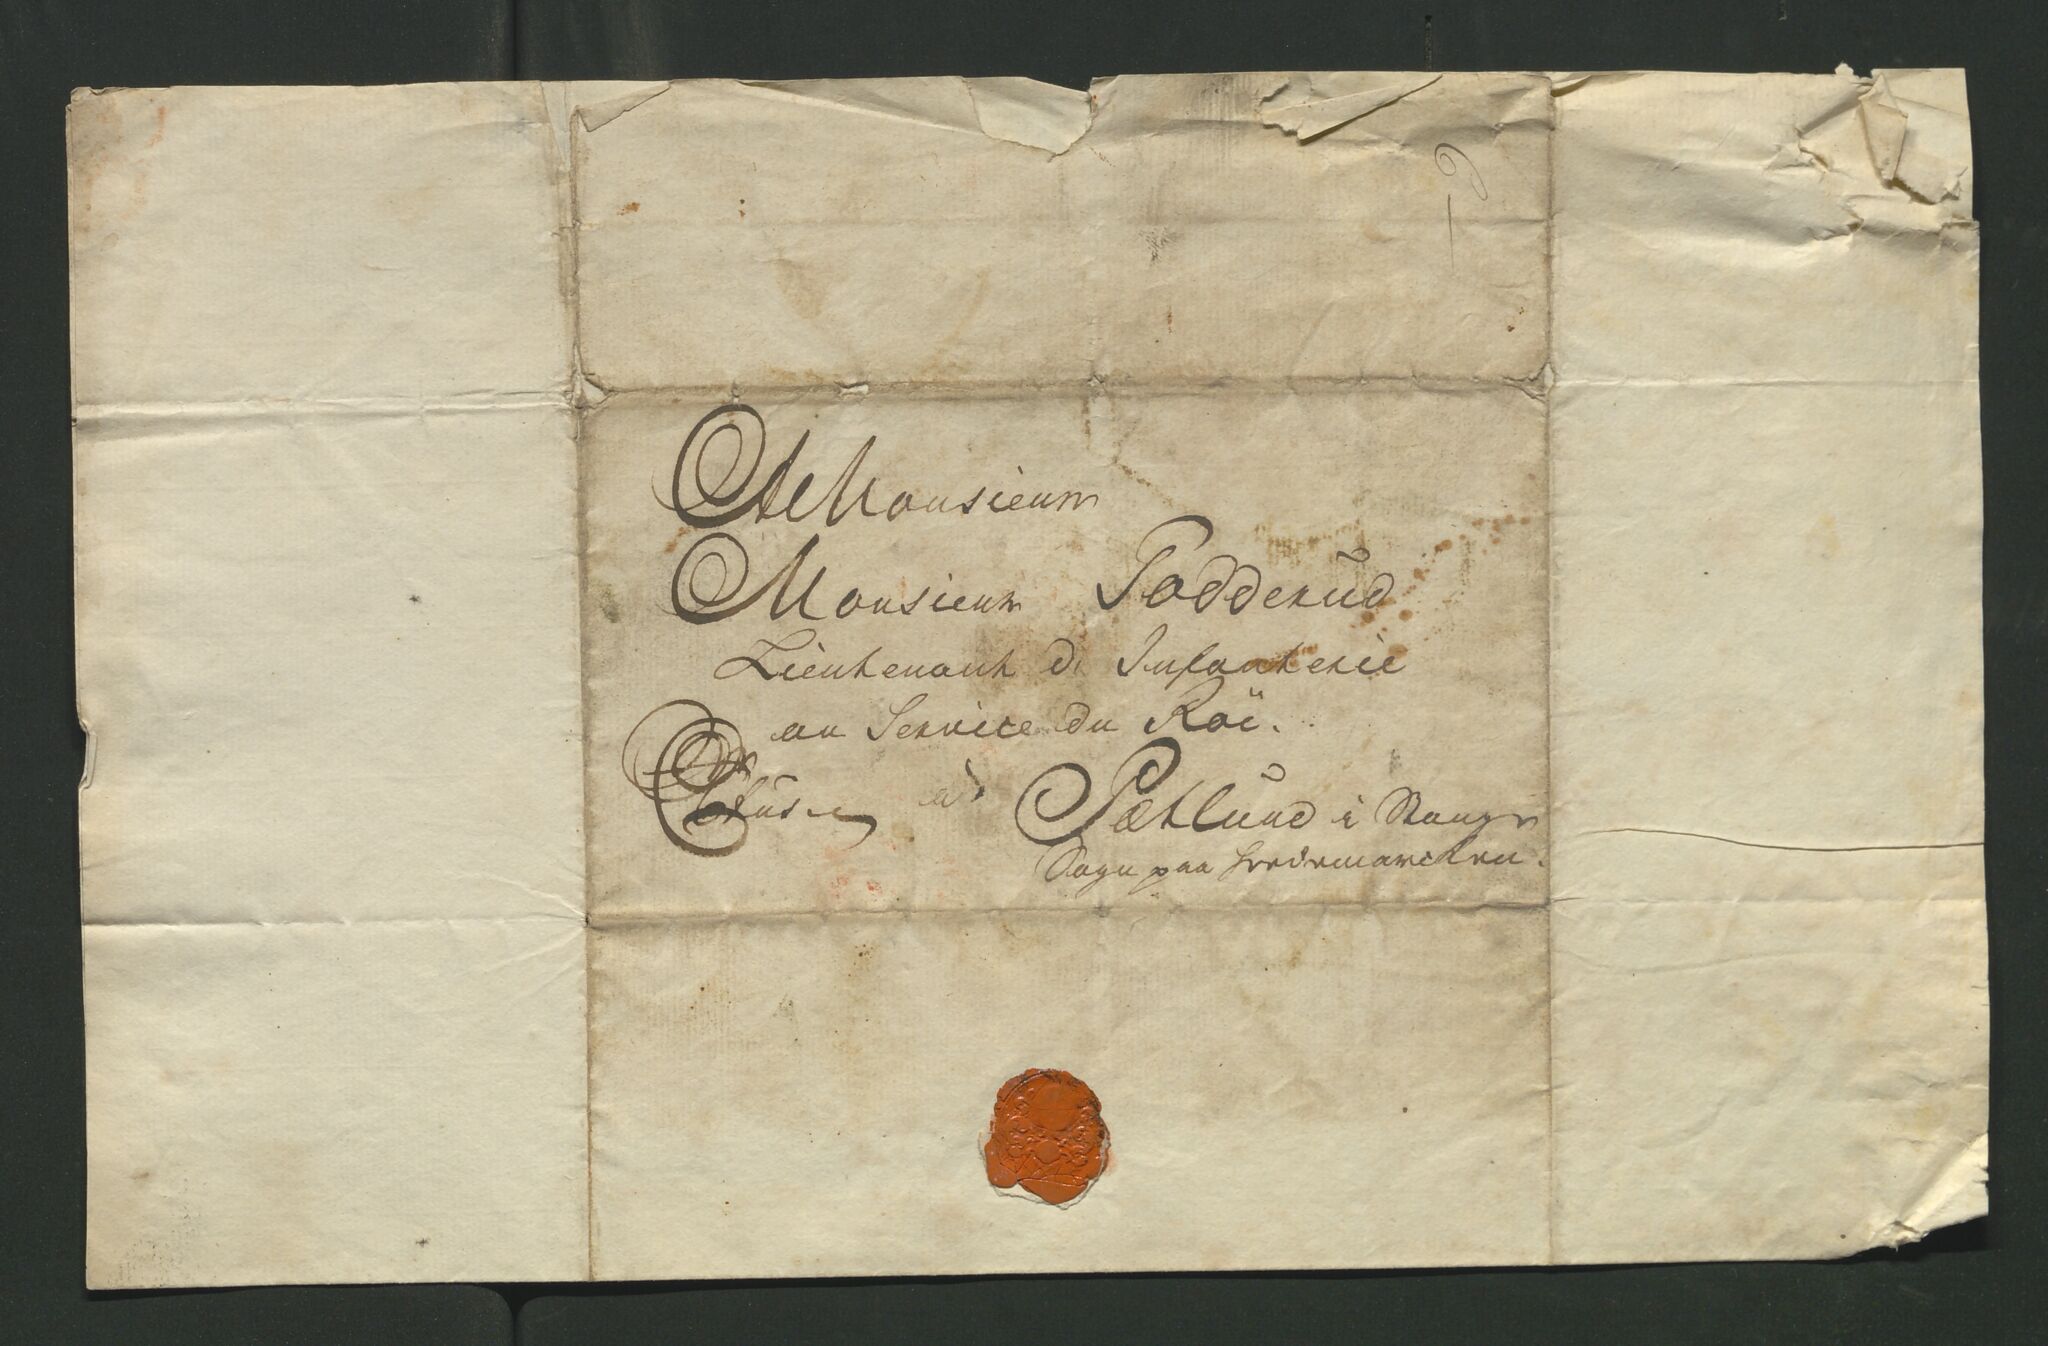 A Monsieur
Monsieur Todderud
Lieutenant d. Infanterie
au Service du Roï.
à Pætlund i Stange
Sogn paa Hedemarcken.